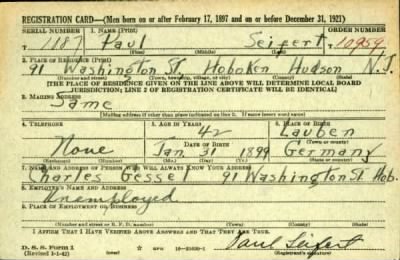 REGISTRATION CARD—(Men born on or after February 17, 1897 and on or before December 31, 1921)
SERIAL NUMBER 1. NAME (Print) ORDER NUMBER
T 1187 Paul Seifert T 10959
(First) (Middle) (Last)
2. PLACE OF RESIDENCE (Print)
91 Washington St Hoboken Hudson N.J.
(Number and street) (Town, township, village, or city) (County) (State)
[THE PLACE OF RESIDENCE GIVEN ON THE LINE ABOVE WILL DETERMINE LOCAL BOARD
JURISDICTION; LINE 2 OF REGISTRATION CERTIFICATE WILL BE IDENTICAL]
3. MAILING ADDRESS
Same
[Mailing address if other than place indicated on line 2. If same insert word same]
4. TELEPHONE 5. AGE IN YEARS 6. PLACE OF BIRTH
42 Lauben
DATE OF BIRTH
None Jan. 31 1899 Germany
(Exchange) (Number) (Mo.) (Day) (Yr.) (State or country)
7. NAME AND ADDRESS OF PERSON WHO WILL ALWAYS KNOW YOUR ADDRESS
Charles Gessel 91 Washington St Hob.
8. EMPLOYER'S NAME AND ADDRESS
Unemployed
9. PLACE OF EMPLOYMENT OR BUSINESS
(Number and street or R. F. D. number) (Town) (County) (State)
I AFFIRM THAT I HAVE VERIFIED ABOVE ANSWERS AND THAT THEY ARE TRUE.
D. S. S. Form 1
(Revised 1-1-42) (over) Paul Seifert
(Registrant's signature)